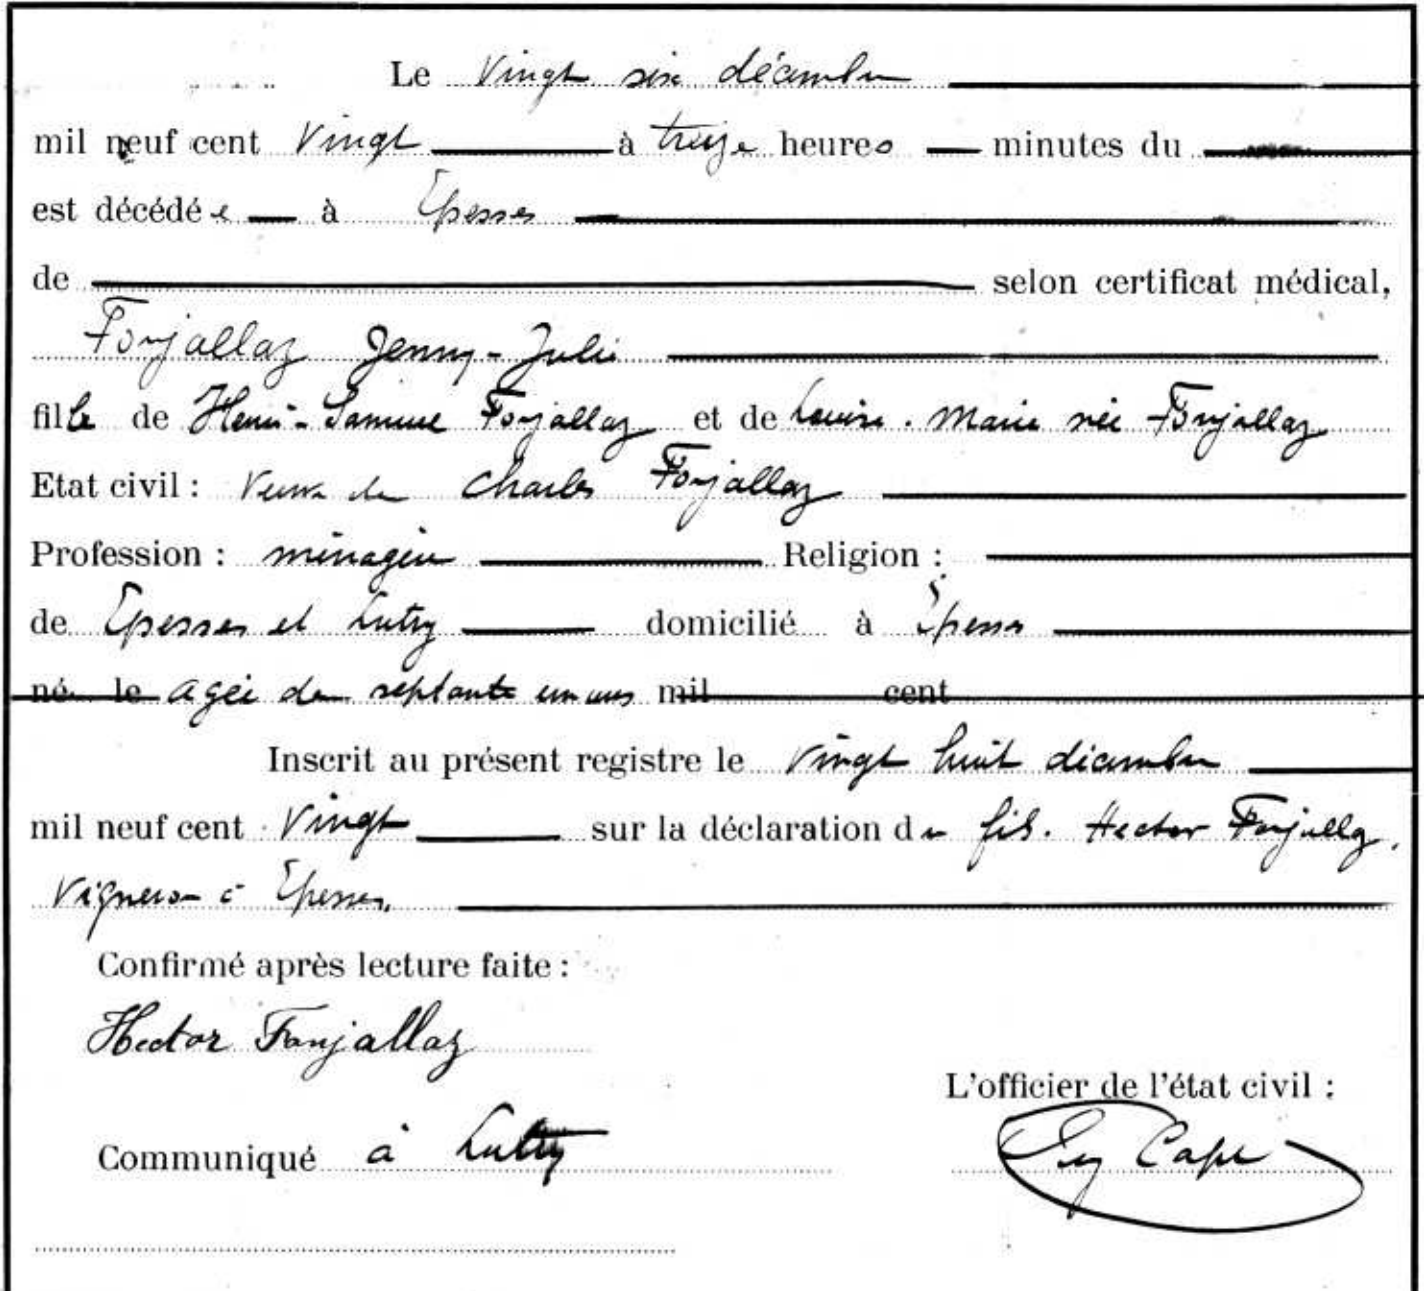 Le Vingt six décembre
mil neuf cent Vingt à treize heures minutes du
est décédée à Epesses
de selon certificat médical,
Fonjallaz Jenny-Julie
fille de Henri-Samuel Fonjallaz et de Louise. Marie née Fonjallaz
Etat civil : Veuve de Charles Fonjallaz
Profession : ménagère Religion :
de Epesses et Lutry domicilié à Epesses
né le agée de septante un ans mil cent
Inscrit au présent registre le vingt huit décembre
mil neuf cent Vingt sur la déclaration du fils. Hector Fonjallaz,
Vigneron à Epesses.
Confirmé après lecture faite :
Hector Fonjallaz
L'officier de l'état civil :
Communiqué à Lutry